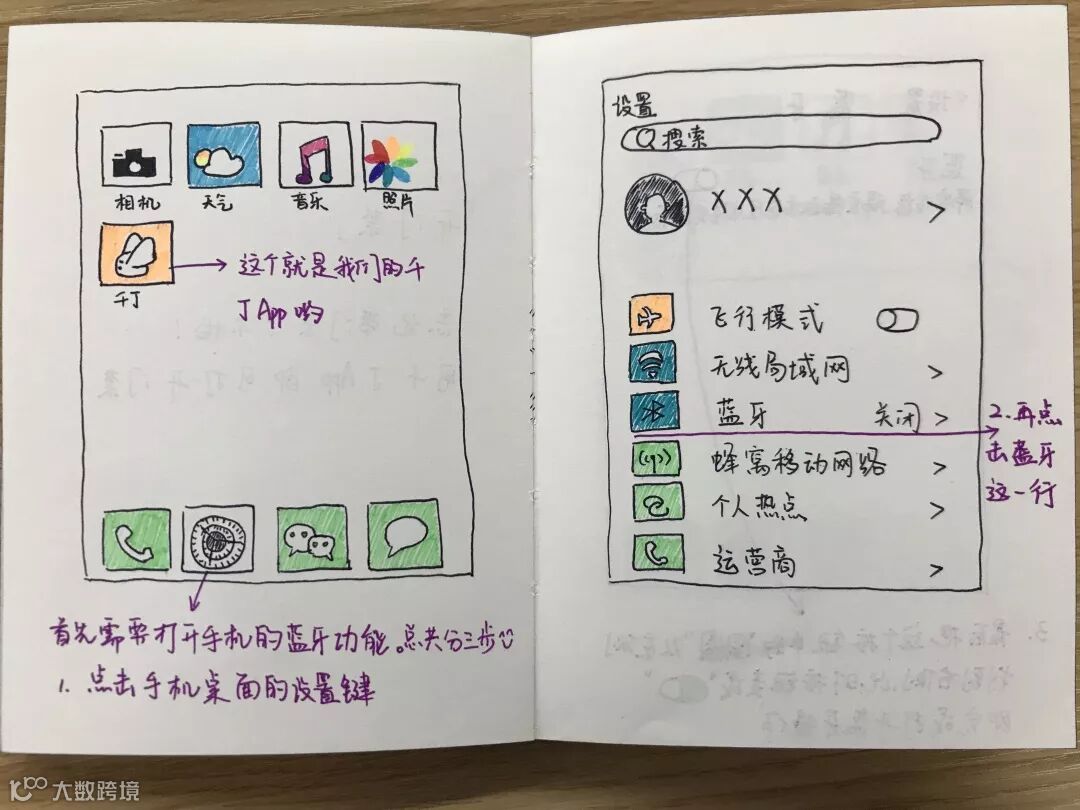 相机
天气
音乐
照片
千丁
这个就是我们的千
丁App哟
首先需要打开手机的蓝牙功能。总共分三步
1. 点击手机桌面的设置键
设置
搜索
XXX
飞行模式
无线局域网
蓝牙 关闭 >
蜂窝移动网络
个人热点
运营商
2.再点
击蓝牙
这一行
大数跨境